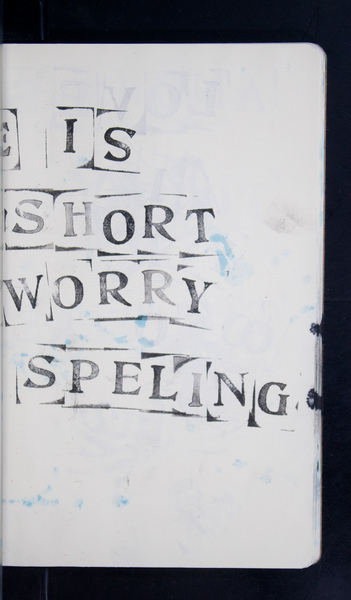 E IS
SHORT
WORRY
SPELING